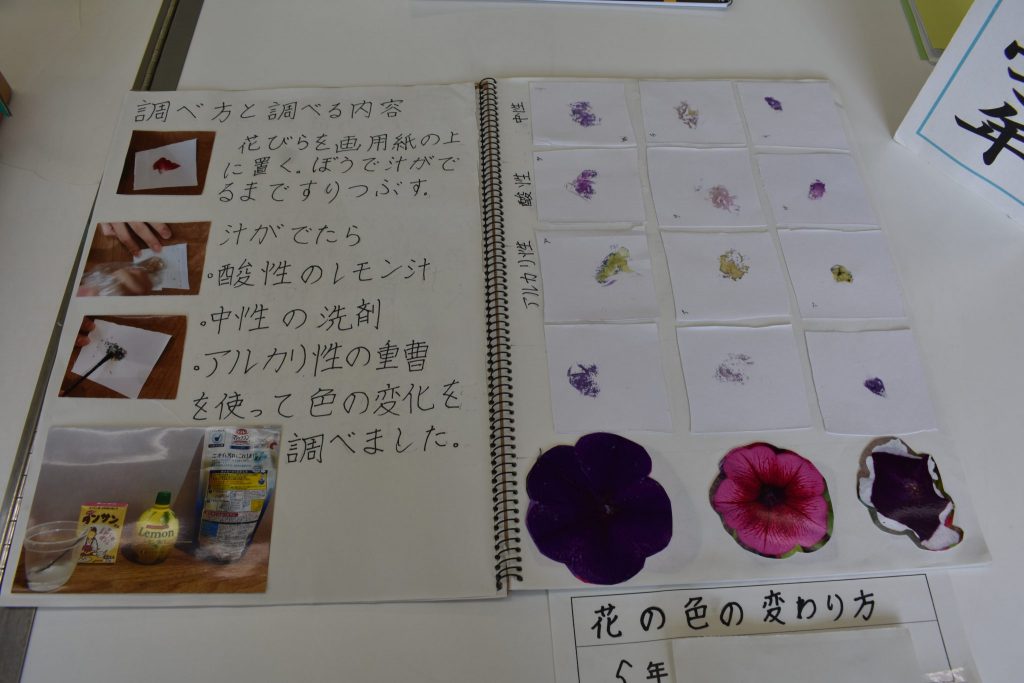 調べ方と調べる内容
花びらを画用紙の上
に置く。ぼうで汁がで
るまですりつぶす。
汁がでたら
。酸性のレモン汁
。中性の洗剤
。アルカリ性の重曹
を使って色の変化を
調べました。
タンサン
Lemon
中性
酸性
アルカリ性
花の色の変わり方
年
年